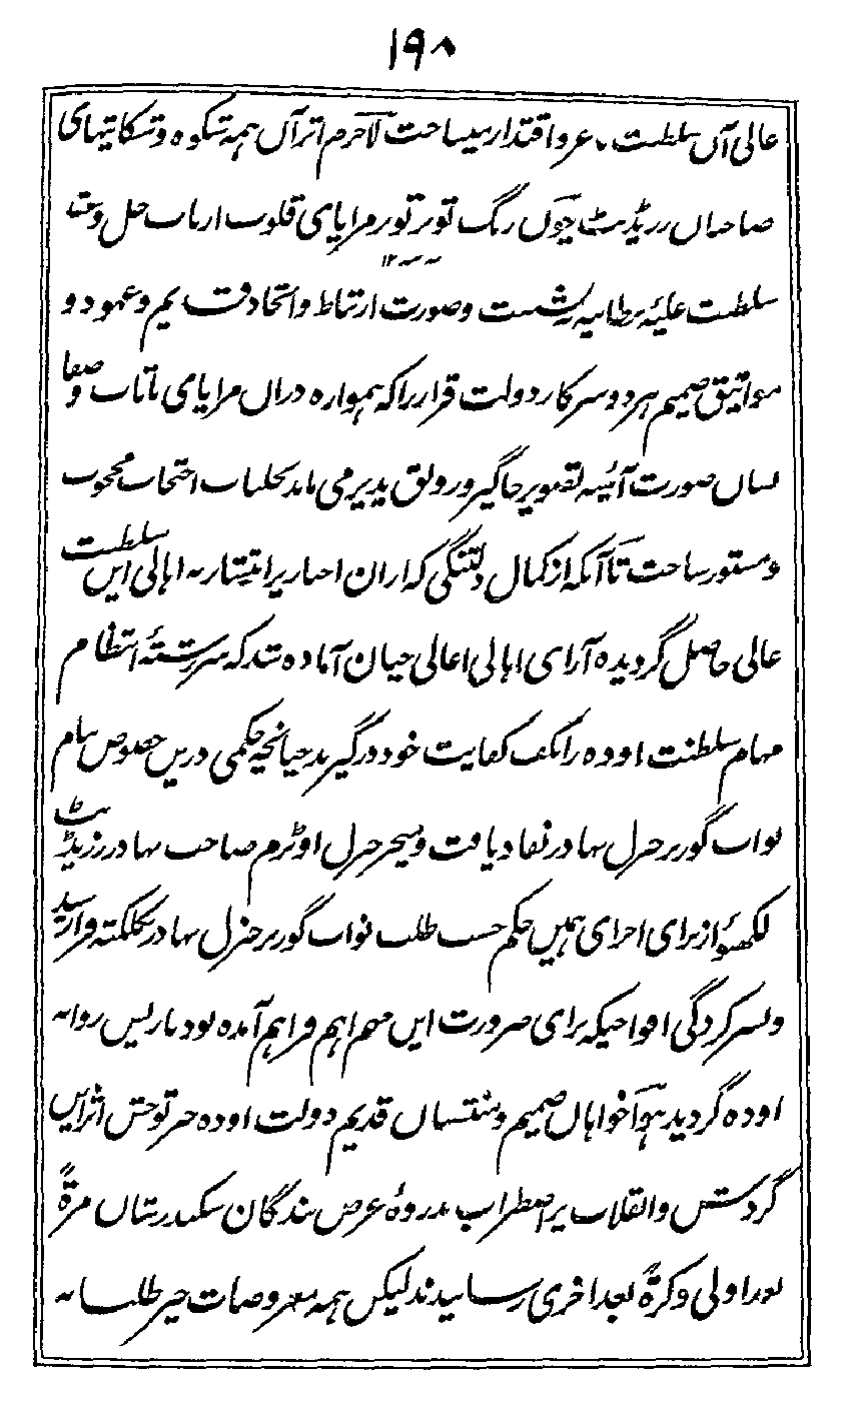 ۱۹۸
عالی آں سلطنت بے عز و اقتدار میساخت لاجرم اثر آں ہمہ شکوہ و شکایتہای
صاحبان رزیڈنٹ چوں رنگ تو بر تو بر مرایای قلوب ارباب حل و عقد
۱۲
سلطنت علیۂ برطانیہ نشست و صورت ارتباط و اتحاد قدیم و عہود و
مواثیق صمیم ہر دو سرکار دولت قرار را کہ ہموارہ دراں مرایای باتاب و صفا
بسان صورت آئینہ تصویر جاگیر و رونق پذیر می ماند بجلباب احتجاب محجوب
و مستور ساخت تا آنکہ از کمال دلتنگی کہ ازان اخبار پر انتشار بہ اہالی ایں سلطنت
عالی حاصل گردیدہ آرای اہالی اعالی چنان آمادہ شد کہ سررشتۂ انتظام
مہام سلطنت اودہ را بکف کفایت خود درگیرند چنانچہ حکمی دریں خصوص بنام
نواب گورنر جنرل بہادر نفاد یافت و میجر جنرل اوٹرم صاحب بہادر رزیڈنٹ
لکھنؤ از برای اجرای ہمیں حکم حسب طلب نواب گورنر جنرل بہادر بکلکتہ وارسید
و بسرکردگی افواجیکہ برای ضرورت ایں مہم اہم فراہم آمدہ بود باز پس روانہ
اودہ گردید ہواخواہاں صمیم و منتسباں قدیم دولت اودہ خبر توحش اثر ایں
گردش و انقلاب پر اضطراب بذروۂ عرض بندگان سکندر شاں مرۃً
بعد اولی و کرۃً بعد اخری رسانیدند لیکن ہمہ معروضات خیر طلبانہ